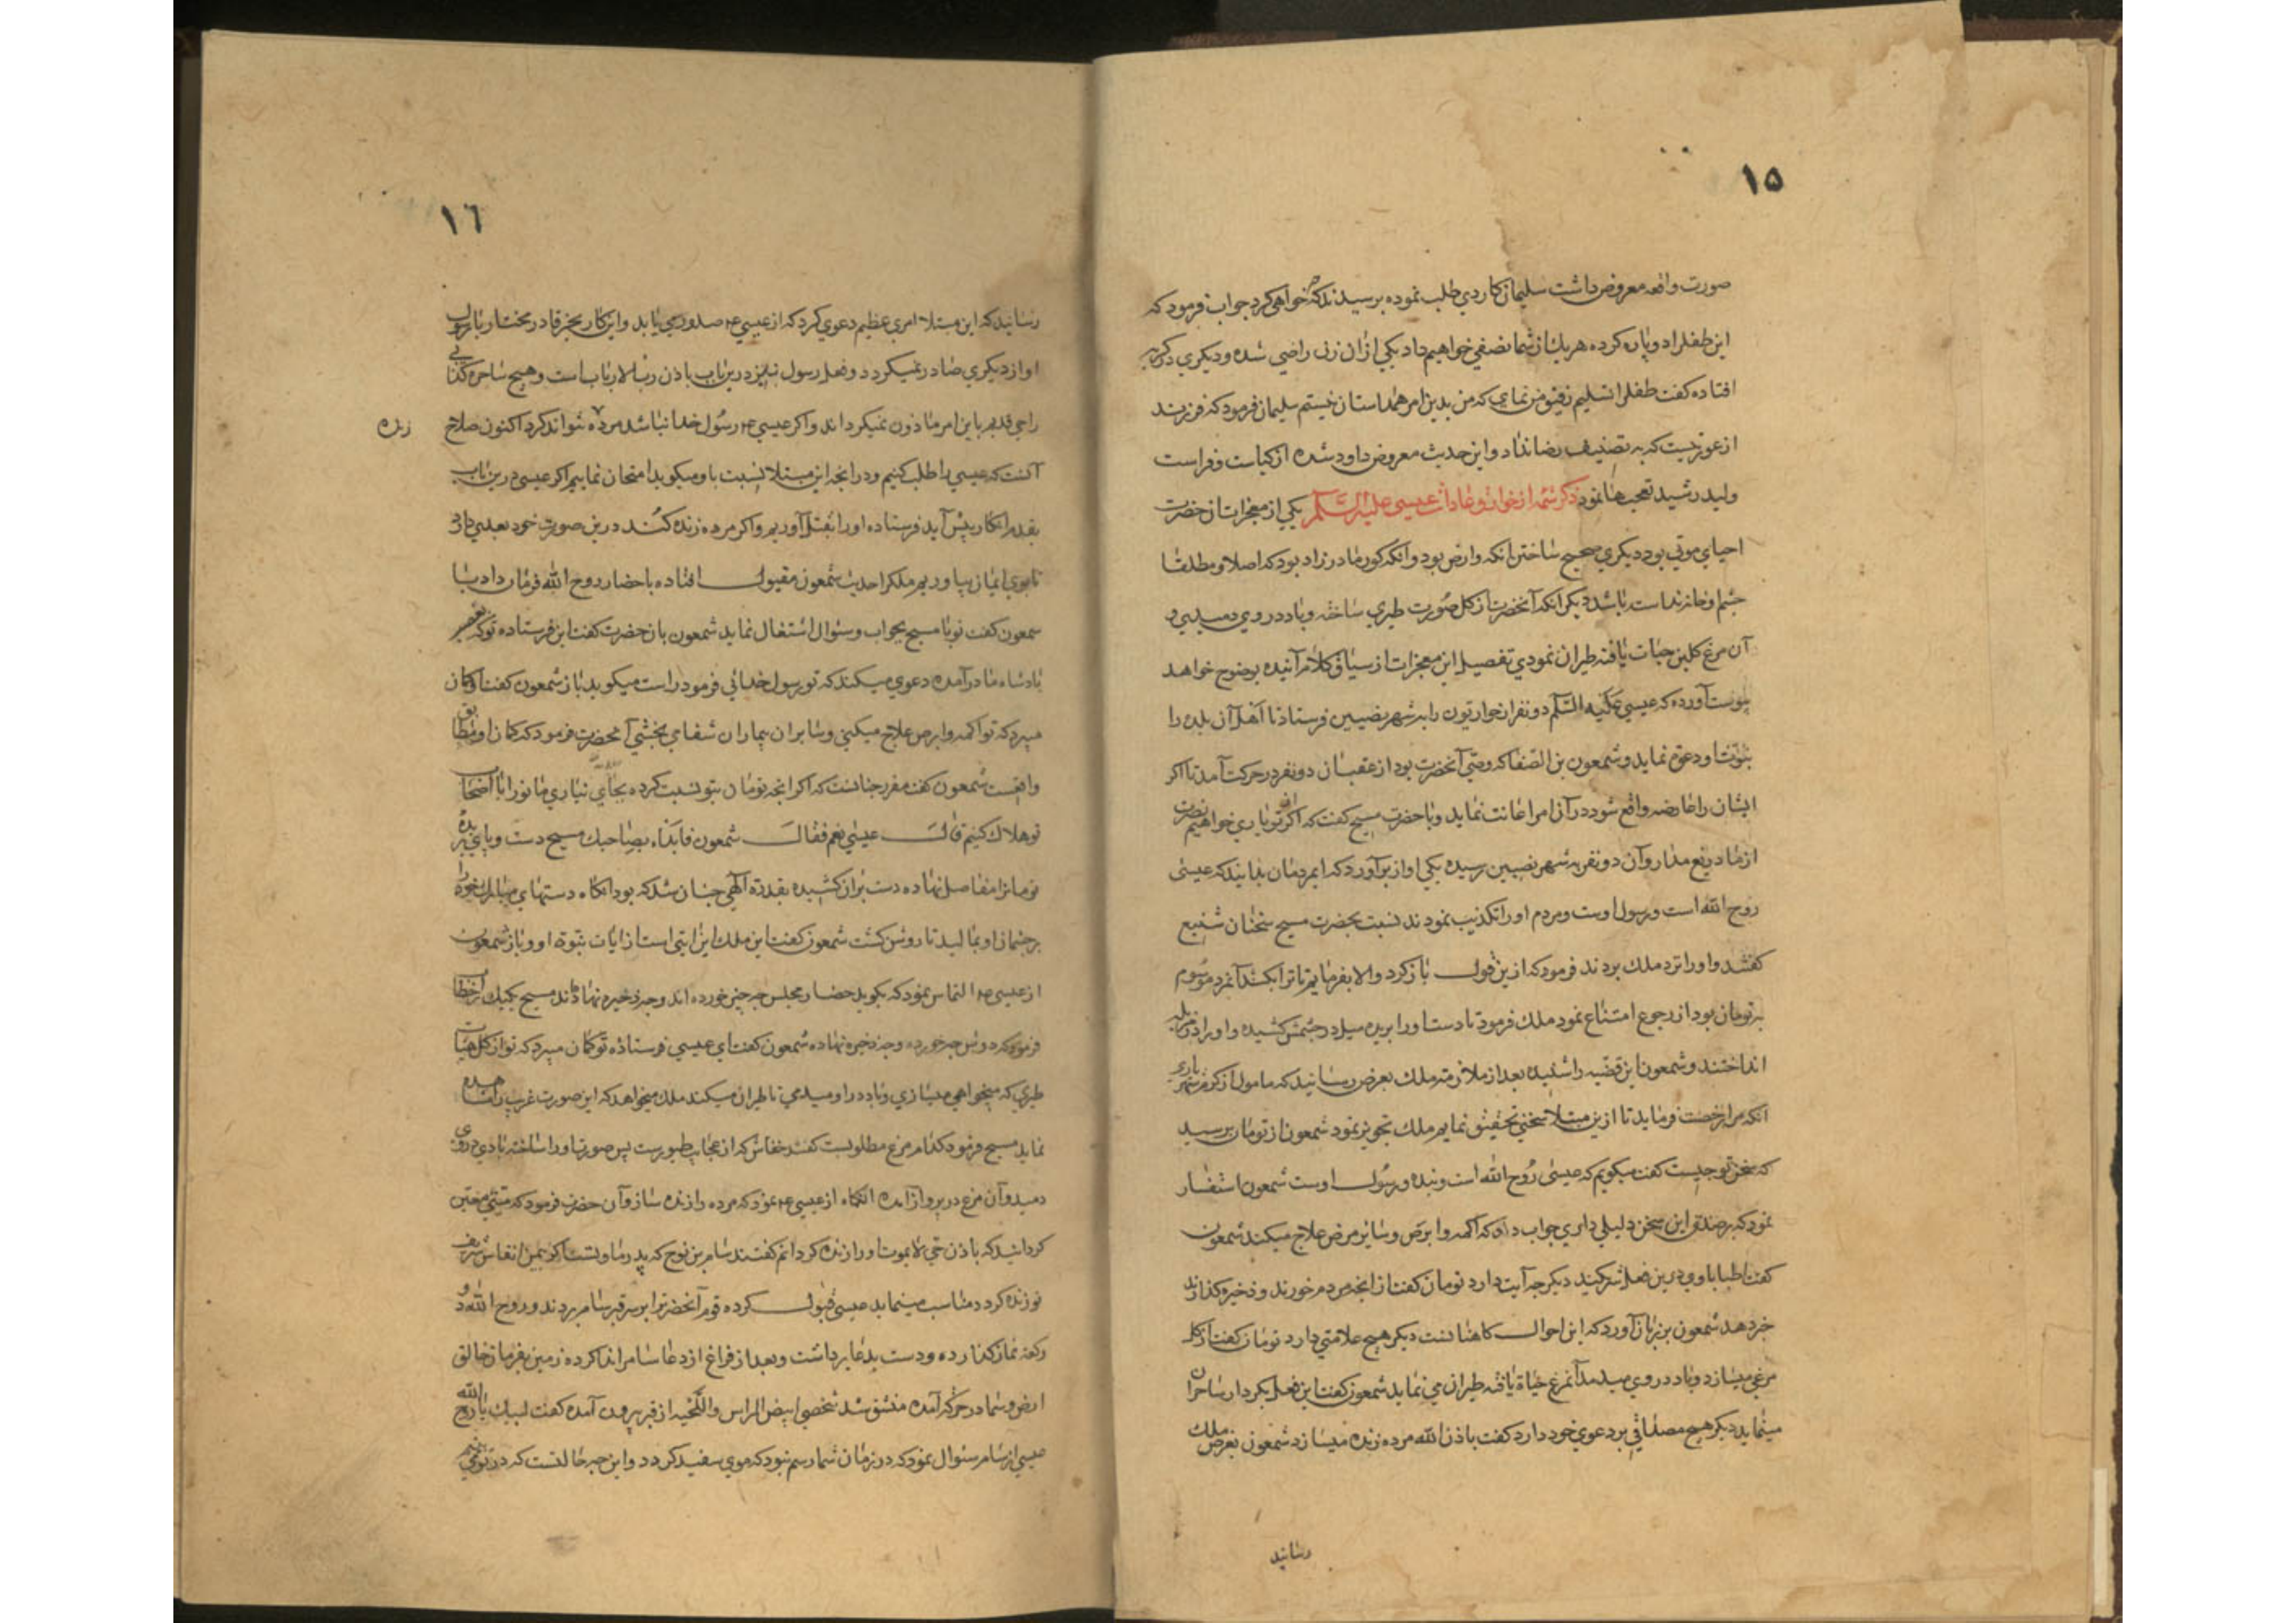 ١٥
صورت واقعه معروض داشت سلیمان کاردی طلب نموده پرسیدند که چه خواهی کرد جواب فرمود که
این طفل را دو پاره کرده هر یک از شما نصفی خواهیم داد یکی از آن زنان راضی شده و دیگری در گریه
افتاده گفت طفل را تسلیم رفیق من نمای که من بدین امر همداستان نیستم سلیمان فرمود که فرزند
از عورتیست که به تصنیف رضا نداد و این حدیث معروض داود شده از کیاست و فراست
ولید رشید تعجب‌ها نمود ذکر شمه از خوارق عادات عیسی علیه السلام یکی از معجزات آن حضرت
احیای موتی بود دیگری صحیح ساختن آنکه وارض بود و آنکه کور مادرزاد بود که اصلا و مطلقا
چشم و خانه نداشته باشد دیگر آنکه آنحضرت از گل صورت طیری ساخته و باد در وی دمیدی و
آن مرغ گلین حیات یافته طیران نمودی تفصیل این معجزات از سیاق کلام آینده بوضوح خواهد
پیوست آورده که عیسی علیه السلم دو نفر از حواریون را به شهر نصیبین فرستاد تا اهل آن بلده را
بنبوت او دعوت نماید و شمعون بن الصفا که وصی آنحضرت بود از عقب آن دو نفر در حرکت آمد تا اگر
ایشان را عارضه واقع شود در آن امر اعانت نماید و با حضرت مسیح گفت که اگر از تو یاری خواهیم نصرت
از ما دریغ مدار و آن دو نفر به شهر نصیبین رسیده یکی آواز برآورد که ای مردمان بدانید که عیسی
روح الله است و رسول اوست و مردم او را تکذیب نمودند نسبت بحضرت مسیح سخنان شنیع
گفتند و او را نزد ملک بردند فرمود که ازین قول بازگرد والا بفرمایم تا ترا بکشند آنمرد موسوم
به تومان بود از رجوع امتناع نمود ملک فرمود تا دست او را بریده میل در چشمش کشیده و او را در مزبله
انداختند و شمعون این قضیه را شنیده بعد از ملازمت ملک بعرض رسانید که مامول از کرم شهریاری
آنکه مرا رخصت فرماید تا ازین مبتلا سخنی تحقیق نمایم ملک تجویز نمود شمعون از تومان پرسید
که سخن تو چیست گفت میگویم که عیسی روح الله است و بنده و رسول اوست شمعون استفسار
نمود که بر صدق این سخن دلیلی داری جواب داد که اکمه و ابرص و سایر مرض علاج میکند شمعون
گفت اطبا با وی درین فعل شرکیند دیگر چه آیت دارد تومان گفت از آنچه مردم خورند و ذخیره گذارند
خبر دهد شمعون بر زبان آورد که این احوال کاهنانست دیگر هیچ علامتی دارد تومان گفت از گل
مرغی میسازد و باد در وی میدمد آنمرغ حیاة یافته طیران می نماید شمعون گفت این فعل بکردار ساحران
مینماید دیگر هیچ مصداقی بر دعوی خود دارد گفت باذن الله مرده زنده میسازد شمعون بعرض ملک
رسانید
١٦
رسانید که این مبتلا امری عظیم دعوی کرد که از عیسی ع م صدور می یابد و این کار بجز قادر مختار یا برسول
او از دیگری صادر نمیگردد و فعل رسول نیز درین باب باذن رب الارباب است و هیچ ساحر کذابی
را حی قدیم باین امر ماذون نمیگرداند و اگر عیسی ع م رسول خدا نباشد مرده نتواند کرد اکنون صلاح
زنده
آنست که عیسی را طلب کنیم و در آنچه این مبتلا نسبت باو میگوید امتحان نماییم اگر عیسی درین باب
بقدم انکار پیش آید فرستاده او را بقتل آوریم و اگر مرده زنده کند درین صورت خود بعد
تا بوی ایمان بیاوریم ملک را حدیث شمعون مقبول افتاده باحضار روح الله فرمان داد
شمعون گفت تو با مسیح بجواب و سئوال اشتغال نماید شمعون بآن حضرت گفت این فرستاده تو که
پادشاه ما درآمده دعوی میکند که تو رسول خدائی فرمود راست میگوید باز شمعون گفت او گمان
میبرد که تو اکمه و ابرص علاج میکنی و سایر آن بیماران شفا می بخشی آنحضرت فرمود که گمان او مطابق
واقعست شمعون گفت مقرر چنانست که اگر آنچه تومان بتو نسبت کرده بجای نیاری ما تو را با اصحاب
تو هلاک کنیم قال عیسی نعم فقال شمعون فابداء بصاحبک مسیح دست و پای بریده
تومان را مفاصل نهاده دست بر آن کشیده بقدرة الهی چنان شد که بود آنگاه دستهای مبارک خود را
بر چشمان او بمالید تا روشن گشت شمعون گفت این ملک این آیتی است از آیات نبوة او و باز شمعون
از عیسی ع م التماس نمود که بگوید حضار مجلس چه چیز خورده اند و چه ذخیره نهاده اند مسیح بیکیک
فرمود که دوش چه خورده و چه ذخیره نهاده شمعون گفت ای عیسی فرستاده تو گمان میبرد که تو از گل هیات
طیری که میخواهی میسازی و باد در او میدمی تا طیران میکند ملک میخواهد که این صورت غریب را مشاهده
نماید مسیح فرمود کدام مرغ مطلوبست گفتند خفاش که از عجایب طیورست پس صورت او را ساخته بادی در وی
دمید و آن مرغ در پرواز آمده آنگاه از عیسی ع م نمود که مرده را زنده ساز و آن حضرت فرمود که میتی معین
گردانید که باذن حی لا یموت او را زنده گردانم گفتند سام بن نوح که پدر ما و تست اگر بیمن انفاس شریف
تو زنده گردد مناسب مینماید عیسی قبول کرده قوم آنحضرت را بر سر قبر سام بردند و روح الله دو
رکعت نماز گذارده و دست بدعا برداشت و بعد از فراغ از دعا سام را ندا کرده زمین بفرمان خالق
ارض و سما در حرکت آمده منشق شد شخصی ابیض الراس واللحیه از قبر بیرون آمده گفت لبیک یا روح الله
عیسی از سام سئوال نمود که در زمان شما رسم نبود که موی سفید گردد و این چه حالتست که در تو